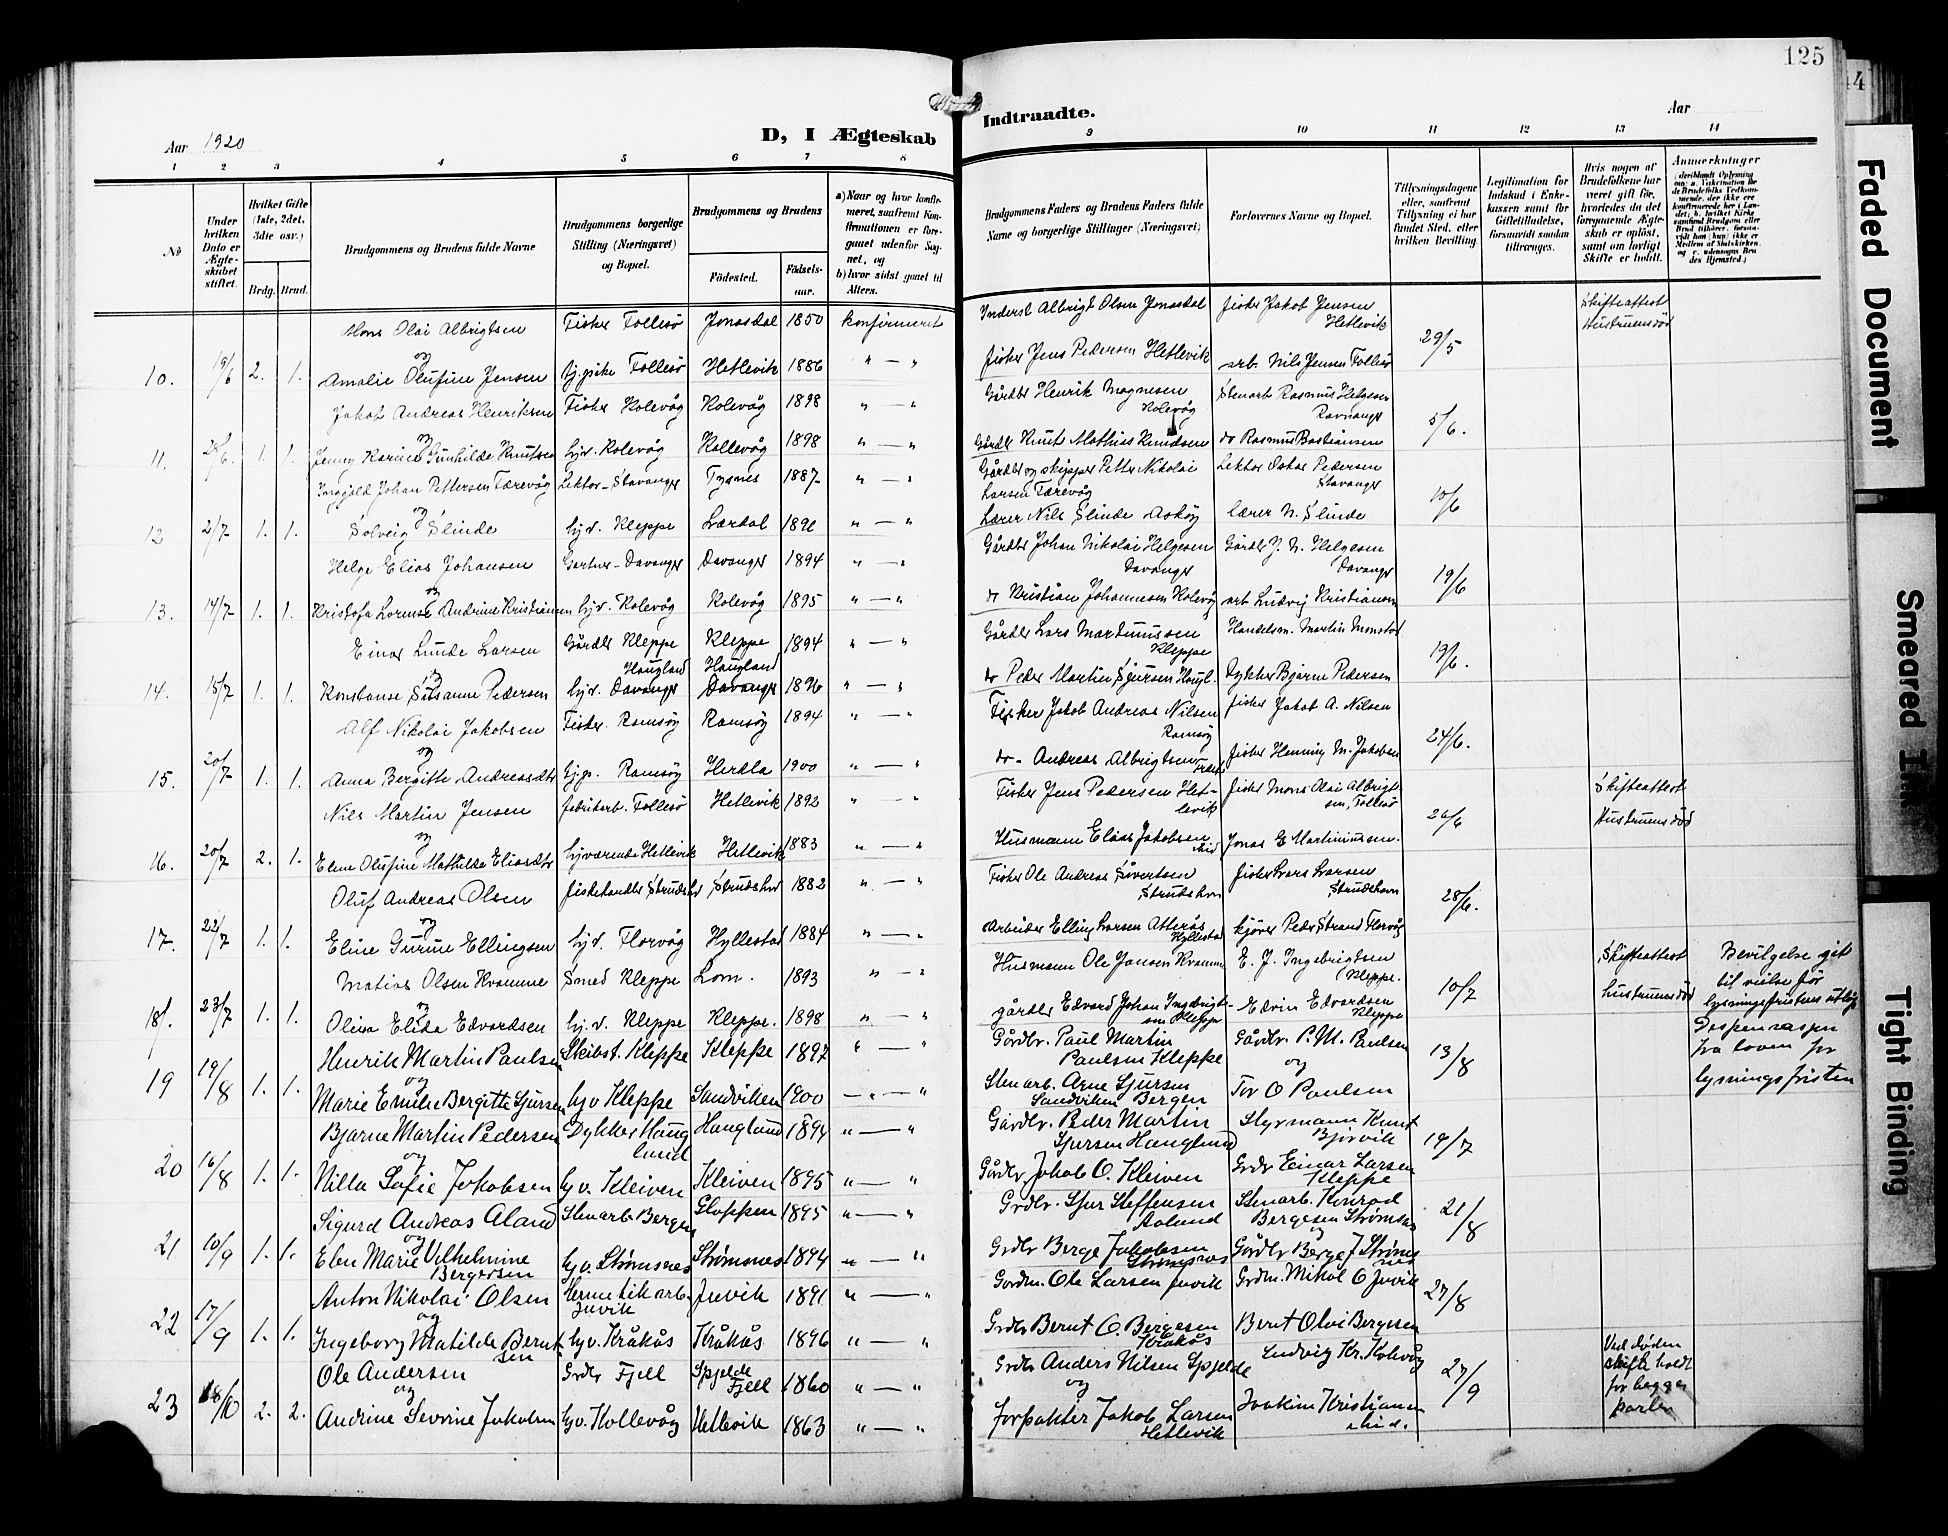 125
44
Aar 1920
D, I Ægteskab
Indtraadte.
Aar
1 2 3 4 5 6 7 8
9 10 11 12 13 14
No
Under hvilken Dato er Ægteskabet stiftet.
Hvilket Gifte (1ste, 2det, 3dte osv.)
Brdg. Brud.
Brudgommens og Brudens fulde Navne
Brudgommens borgerlige Stilling (Næringsvei) og Bopæl.
Brudgommens og Brudens
Fødested.
Fødselsaar.
a) Naar og hvor konfirmeret, saafremt Konfirmationen er foregaaet udenfor Sognet, og
b) hvor sidst gaaet til Alters.
Brudgommens Faders og Brudens Faders fulde Navne og borgerlige Stillinger (Næringsvei)
Forlovernes Navne og Bopæl.
Tillysningsdagene eller, saafremt Tillysning ei har fundet Sted, efter hvilken Bevilling.
Legitimation for Indskud i Enkekassen samt for Giftetilladelse, forsaavidt saadan tiltrænges.
Hvis nogen af Brudefolkene har været gift før, hvorledes da det foregaaende Ægteskab er opløst, samt om lovligt Skifte er holdt.
Anmærkninger
Mons Olai Albrigtsen Fisker Follesø Jonasdal 1850 konfirmeret Inderst Albrigt Olsen Jonasdal fisker Jakob Jensen Hetlevik 29/5 Skifteattest Hustruens død
og
10. 19/6 2. 1. Amalie Olufine Jensen tj.pike Follesø Hetlevik 1886 " — " fisker Jens Pedersen Hetlevik arb. Nils Jensen Follesø
Jakob Andreas Henriksen Fisker Kolevåg Kolevåg 1898 " — " Gårdbr Henrik Magnesen Kolevåg Stenarb Rasmus Helgesen Ravnanger 5/6.
og
11. 25/6. 1. 1. Jenny Karine Gunhilde Knutsen hjv. Kolevåg Kollevåg 1898 " — " Gårdbr Knut Mathias Knudsen do Rasmus Bastiansen
Ingjald Johan Pettersen Færevåg Lektor – Stavanger Tysnes 1887 " — " Gårdbr og skipper Petter Nikolai Larsen Færevåg Lektor Oskar Pedersen Stavanger 10/6
og
12 2/7 1. 1. Solveig Slinde hjv. Kleppe Lærdal 1891 " — " Lærer Nils Slinde Askøy lærer N. Slinde
Helge Elias Johansen Gartner – Davanger Davanger 1894 " — " Gårdbr Johan Nikolai Helgesen Davanger Gårdbr J. N. Helgesen Davanger 19/6
og
13. 14/7 1. 1. Kristofa Lornse Andrine Kristiansen hjv. Kolevåg Kolevåg 1895 " — " do Kristian Johannesen Kolevåg arb Ludvig Kristiansen
Einar Lunde Larsen Gårdbr Kleppe Kleppe 1894 " — " Gårdbr Lars Martinussen Kleppe Handelsm. Martin Monstad 19/6.
og
14. 15/7 1. 1. Konstanse Susanne Pedersen hjv. Davanger Haugland Haugland Davanger 1896 " — " do Peder Martin Sjursen Haugl. Dykker Bjarne Pedersen
Alf Nikolai Jakobsen Fisker. Ramsøy Ramsøy 1894 " — " Fisker Jakob Andreas Nilsen Ramsøy fisker Jakob A. Nilsen 24/6.
og
15. 20/7 1. 1. Anna Bergitte Andreasdtr tj.p. Ramsøy Herdla 1900 " — " do – Andreas Albrigtsen fisker Henning M. Jakobsen
Nils Martin Jensen fabrikarb. Follesø Hetlevik 1892 " — " Fisker Jens Pedersen Hetlevik fisker Mons Olai Albrigtsen, Follesø 26/6 Skifteattest Hustruens død
og
16. 20/7 2. 1. Eline Olufine Mathilde Eliasdtr hjværende Hetlevik Hetlevik 1883 " — " Husmann Elias Jakobsen Jonas E Martiniussen.
Oluf Andreas Olsen fiskehandler Strudshn Strudshvn 1882 " — " Fisker Ole Andreas Sivertsen Strudshvn fisker Lars Larsen Strudshavn 28/6.
og
17. 22/7 1. 1. Eline Gurine Ellingsen hjv. Florvåg Hyllestad 1884 " — " Arbeider Elling Larsen Atterås Hyllestad kjører Peder Strand Florvåg
Matias Olsen Kvamme Smed Kleppe Lom. 1893 " — " Husmann Ole Jansen Kvamme E. J. Ingebrigtsen Kleppe. 10/7 Skifteattest hustruens død Bevilgelse git til vielse før lysningsfristens utløp
og
18. 23/7 1. 1. Oliva Elida Edvardsen hj.v. Kleppe Kleppe. 1898 " — " gårdbr Edvard Johan Ingebrigtsen Kleppe Edvin Edvardsen Kleppe
Henrik Martin Paulsen Skibst. Kleppe Kleppe 1897 " — " Gårdbr. Paul Martin Paulsen Kleppe Gårdbr. P. M. Paulsen 13/8 Dispensasjon fra loven for lysningsfristen
og og
19 19/8 1. 1. Marie Emilie Bergitte Sjursen hjv Kleppe Sandviken 1900 — " — " Stenarb. Arne Sjursen Sandviken Bergen Tor O Paulsen
Bjarne Martin Pedersen Dykker Haugland Haugland 1894 " — " Gårdbr. Peder Martin Sjursen Haugland Styrmann Knut Bjørvik 19/7
og
20 16/8 1. 1. Nilla Sofie Jakobsen hjv. Kleiven Kleiven 1895 " — " Gårdbr Jakob O. Kleiven Grdbr Einar Larsen Kleppe
Sigurd Andreas Aland Stenarb. Bergen Gloppen 1895 " — " Grdbr. Sjur Steffensen Aaland Stenarb. Konrad Bergesen Strømsn 21/8
og og
21 10/9 1. 1. Elen Marie Vilhelmine Bergersen hjv. Strømsnes Strømsnes 1894 " — " Grdbr Berge Jakobsen Strømsnes Gårdbr Berge J Strømsnes
Anton Nikolai Olsen Hermetikarb. Juvik Juvik 1891 " — " Gardm. Ole Larsen Juvik Grdm. Mikal O Juvik 27/8
og
22 17/9 1. 1. Ingeborg Matilde Berntsen hjv. Kråkås Kråkås 1896 " — " Grdbr Bernt O. Bergesen Kråkås Bernt Olvi Bergesen
Ole Andersen Grdbr Fjell Spjelde Fjell 1860 " — " Grdbr Anders Nilsen Spjelde Ludvig Kr. Kolevåg 27/9 Ved døden skifte holdt for begge parter
og og
23 18/10 2. 2. Andrine Sevrine Jakobsen hjv. Kollevåg Hetlevik 1863 " — " forpakter Jakob Larsen Hetlevik Joakim Kristiansen
Faded Document
Smeared Ink
Tight Binding